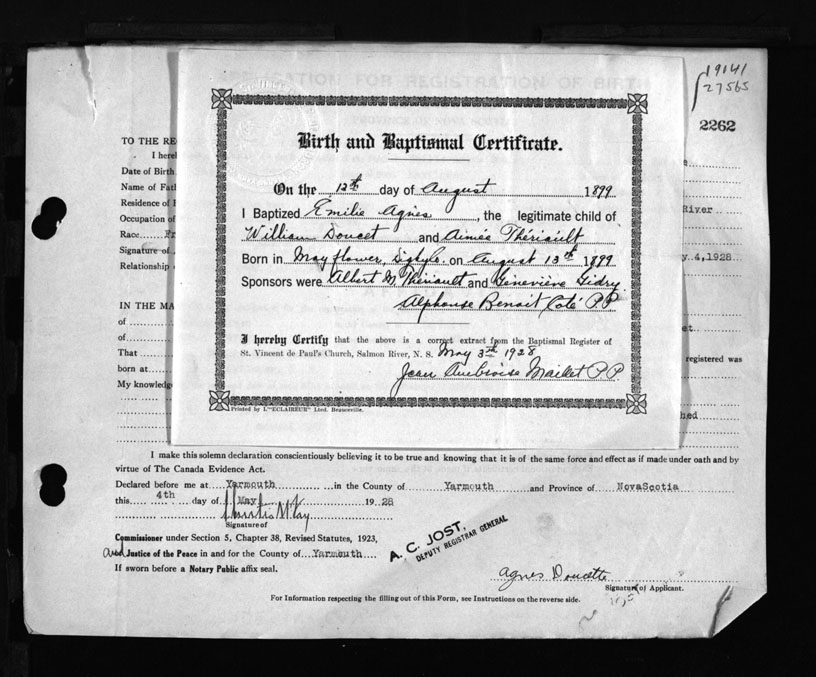 19141
27565
2262
Birth and Baptismal Certificate.
On the 12th day of August 1899
I Baptized Emilie Agnes, the legitimate child of
William Doucet and Aimée Thériault
Born in Mayflower, Digby Co. on August 13th 1899
Sponsors were Albert M. Thériault and Geneviève Gidry
Alphonse Benoit Coté P.P.
I hereby Certify that the above is a correct extract from the Baptismal Register of
St. Vincent de Paul's Church, Salmon River, N. S. May 3rd 1928
Jean Ambroise Maillet P.P.
Printed by L'"ECLAIREUR" Lted. Beauceville.
TO THE RE
I herel
Date of Birth
Name of Fath
Residence of
Occupation of
Race
Signature of
Relationship
IN THE MA
of
of
That
born at
My knowledg
River
y 4,1928
et
registered was
hed
I make this solemn declaration conscientiously believing it to be true and knowing that it is of the same force and effect as if made under oath and by
virtue of The Canada Evidence Act.
Declared before me at Yarmouth in the County of Yarmouth and Province of NovaScotia
this 4th day of May 1928
Signature of
Commissioner under Section 5, Chapter 38, Revised Statutes, 1923,
and Justice of the Peace in and for the County of Yarmouth
If sworn before a Notary Public affix seal.
A. C. JOST,
DEPUTY REGISTRAR GENERAL
Agnes Doucette
Signature of Applicant.
For Information respecting the filling out of this Form, see Instructions on the reverse side.